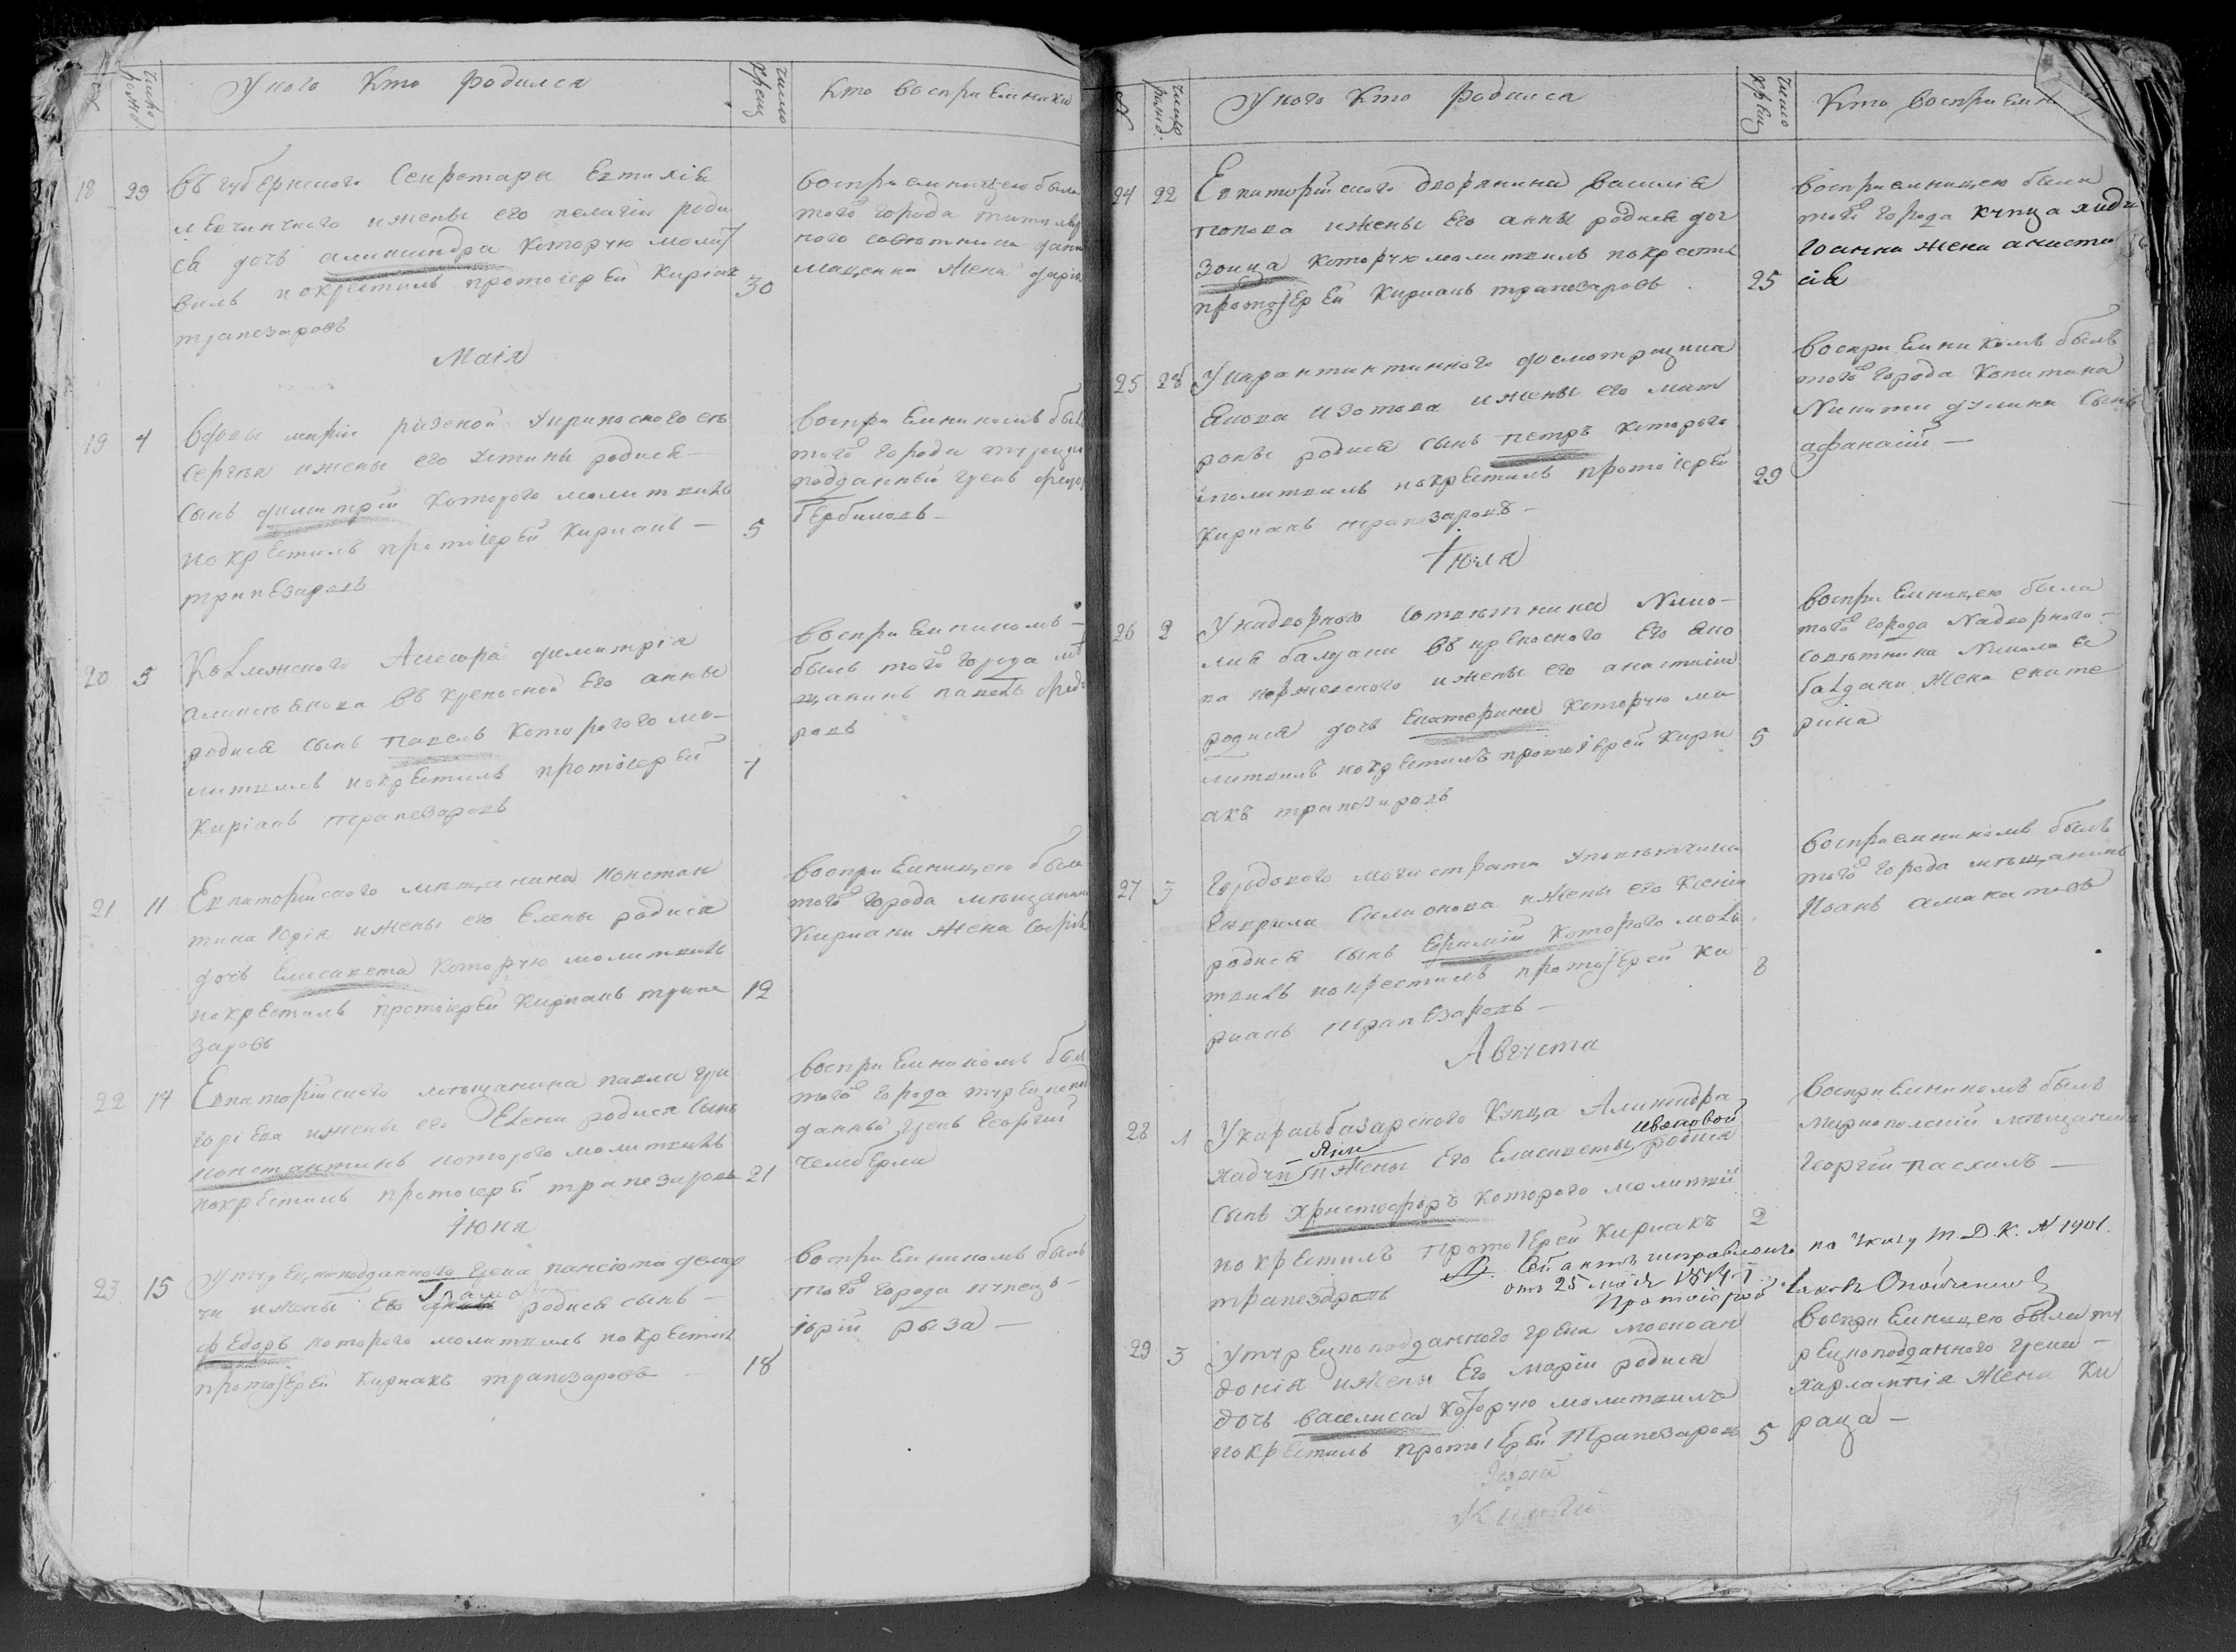 У кого Кто родился
число крещ
Кто восприемники
18 29
въ губернского Секретара
и жены его пелагии роди
ся дочь александра которую молит
вилъ покрестилъ протоіерей Киріак
30
трапезаровъ
восприемницею была
того города титуляр
ного совѣтника
жена дарія
Маія
19 4
сергея и жены его Устины родися
Сынъ димитрій которого молитвилъ
покрестилъ протоіерей Кириакъ
5
трапезаровъ
восприемникомъ былъ
того города турецко
подданный грекъ
20 5
Колежского Асесора димитріа
въ крепосной Его анны
родися сынъ павелъ которого мо
литвилъ покрестилъ протоіерей
7
Киріакъ трапезаровъ
восприемникомъ
былъ того города мѣ
щанинъ павелъ федо
ровъ
21 11
Евпаторійского мещанина констан
тина юрія и жены его Елены родися
дочь Елисавета которую молитвилъ
покрестилъ протоіерей Кириакъ трапе
12
заровъ
восприемницею была
того города мѣщанина
Кириаки жена Софія
22 17
Евпаторійского мѣщанина павла гри
горіева и жены его Елени родися Сынъ
константинъ которого молитвилъ
покрестилъ протоіерей трапезаровъ
21
восприемникомъ былъ
того города турецкопод
данный грекъ Георгий
Іюня
23 15
У турецкоподданного грека
и жены Его родися сынъ
федоръ которого молитвилъ покрестилъ
протоіерей Кириакъ трапезаровъ
18
восприемникомъ былъ
того города купецъ
юрій рыза
N
число рожд.
У кого Кто родился
число крещ
Кто восприемн
24 22
Евпаторійского дворянина василія
попова и жены Его анны родися доч
зоица которую молитвилъ покрестил
протоіерей Кириакъ трапезаровъ
25
восприемницею была
того города купца хаджи
Іоанна жена анаста
сія
25 28
У карантинтинного досмотрщика
Якова Изотова и жены его мат
роны родися сынъ петръ которого
молитвилъ покрестилъ протоіерей
29
Кириакъ трапезаровъ
восприемникомъ былъ
того города Капитана
Никити сынъ
афанасій
Іюля
26 2
У надворного Советника Нико
лая балдани въ крепосного Его яко
ва и жены его анастасіи
родися дочь Екатерина которую мо
литвилъ покрестилъ протоіерей Кири
5
акъ трапезаровъ
восприемницею была
того города Надворного
совѣтника Николая
балдани жена екате
рина
27 3
Городового магистрата
гаврила Симионова и жены его Ксеніи
родися сынъ Ефимій которого моли
твилъ покрестилъ протоіерей Ки
8
риакъ трапезаровъ
восприемникомъ былъ
того города мѣщанинъ
Иванъ
Августа
28 1
У карасьбазарского Купца Александра
Хаджи и жены Его Елисаветы Ивановой родися
сынъ Христофоръ которого молитвил
покрестилъ протоіерей Кириакъ
2
трапезаровъ
восприемникомъ былъ
мариополский мѣщанинъ
Георгій пасхалъ
Сей актъ исправленъ по Указу Т. Д. К. N 1901.
отъ 25 мая 1874 г.
Протоіерей Іаковъ
29 3
У турецкоподданного грека
и жены Его маріи родися
дочь василиса которую молитвилъ
покрестилъ протоіерей Трапезаровъ
5
восприемницею была ту
рецкоподданного грека
харлампія жена Ки
раца